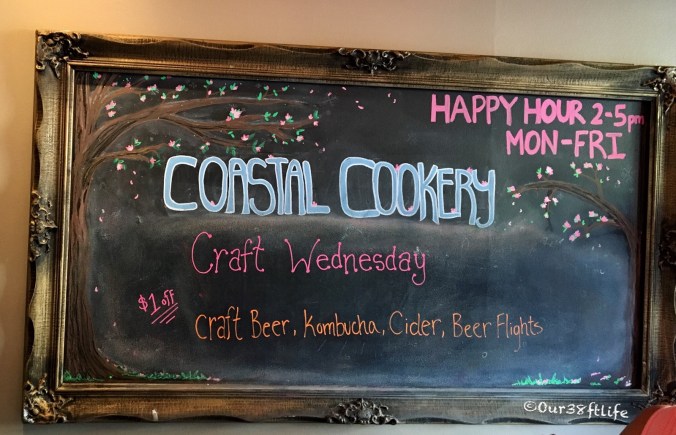 HAPPY HOUR 2-5pm
MON-FRI
COASTAL COOKERY
Craft Wednesday
$1 off
Craft Beer, Kombucha, Cider, Beer Flights
©Our38ftlife